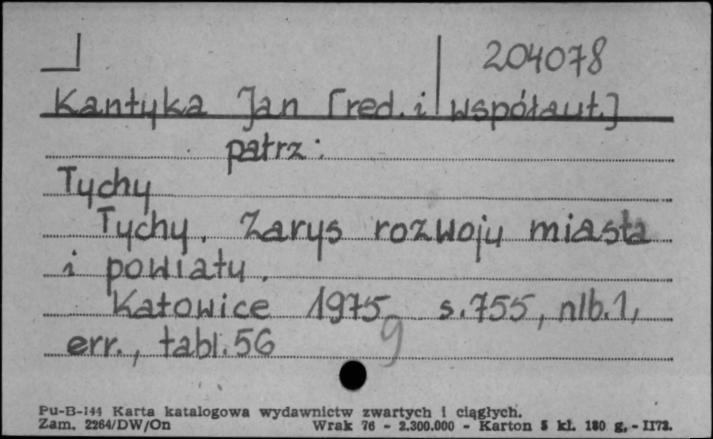 204078
Kantyka Jan [red. i współaut.]
patrz:
Tychy
Tychy. Zarys rozwoju miasta
i powiatu.
Katowice 1975 s. 755, nlb. 1,
err., tabl. 56
g
Pu-B-144 Karta katalogowa wydawnictw zwartych i ciągłych.
Zam. 2264/DW/On Wrak 76 - 2.300.000 - Karton 5 kl. 180 g. - II72.